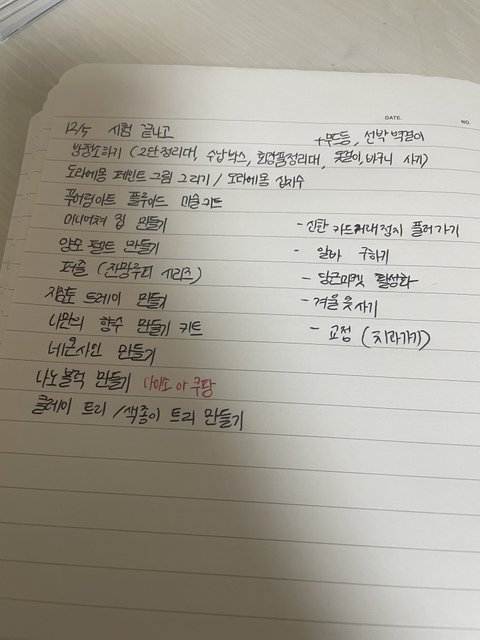 DATE.
NO.
12/5 시험 끝나고
+무드등, 선반 벽걸이
방청소하기 (2단정리대, 수납박스, 화장품정리대, 옷걸이, 바구니 사기)
도라에몽 페인트 그림 그리기 / 도라에몽 십자수
푸어링아트 플루이드 미술키트
미니어쳐 집 만들기
- 신한 카드거래정지 풀러가기
양모 펠트 만들기
- 알바 구하기
퍼즐 (잔망루피 시리즈)
- 당근마켓 활성화
지점토 트레이 만들기
- 겨울 옷 사기
나만의 향수 만들기 키트
- 교정 (치과가기)
네온사인 만들기
나노블럭 만들기 다이소 or 쿠팡
클레이 트리 / 색종이 트리 만들기